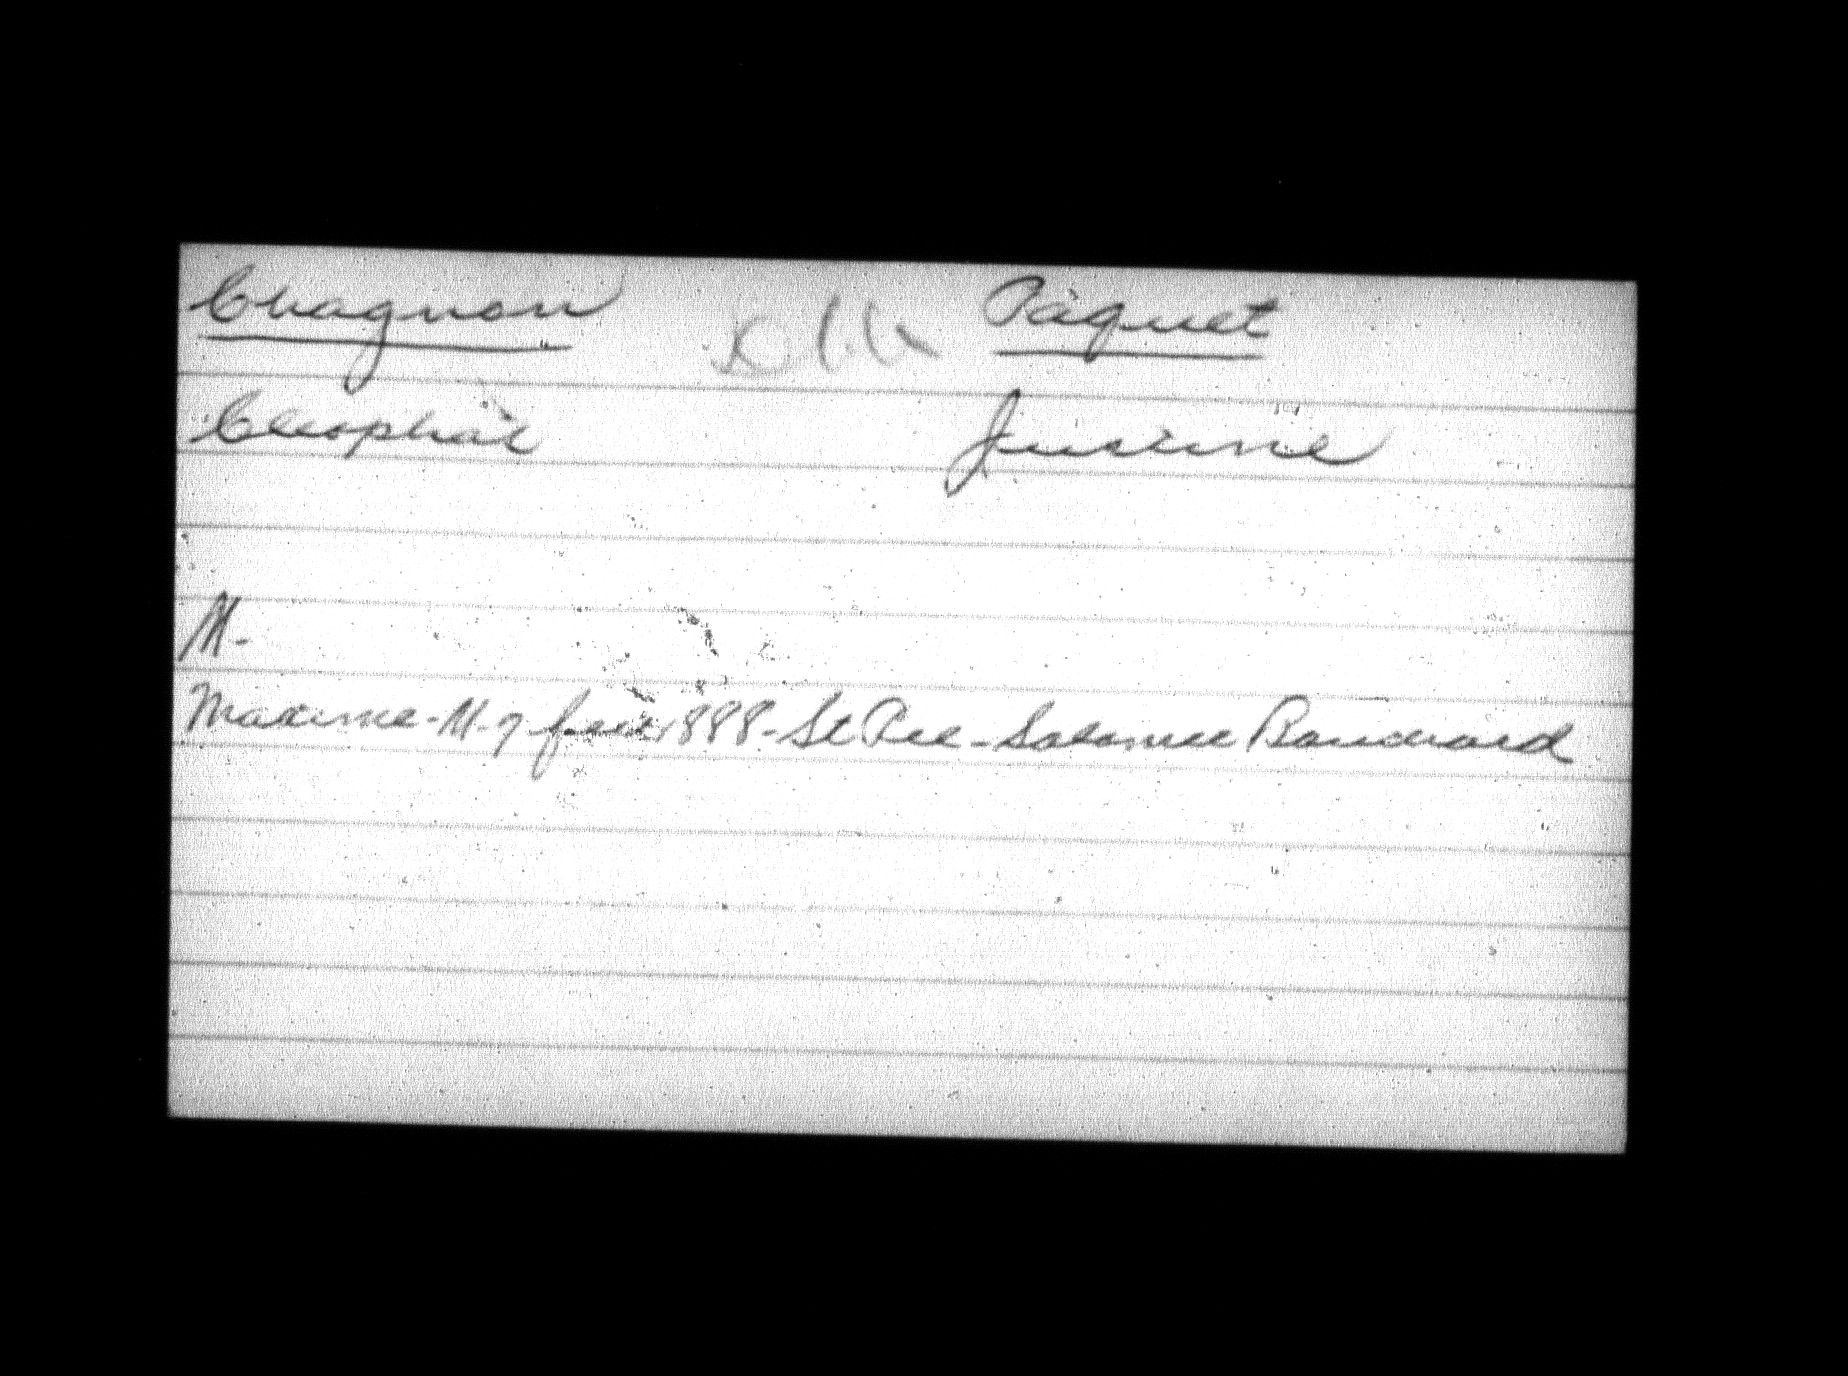 Chagnon Paquet
Cleophas Justine
M-
Maxime - M. 7 1888 - St Pie - Salomee Bouchard